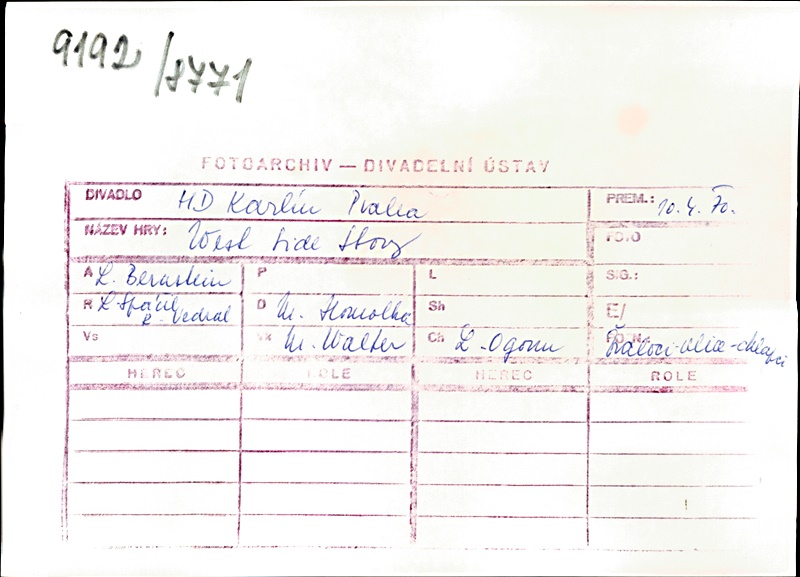 9192/8771
FOTOARCHIV — DIVADELNÍ ÚSTAV
DIVADLO HD Karlín Praha PREM.: 10.4.70.
NÁZEV HRY: West Side Story FOTO
A L. Bernstein P L SIG.:
R L. Spáčil D M. Homolka Sh E/
R. Vedral
Vs Vk M. Walter Ch L. Ogoun
HEREC ROLE HEREC ROLE